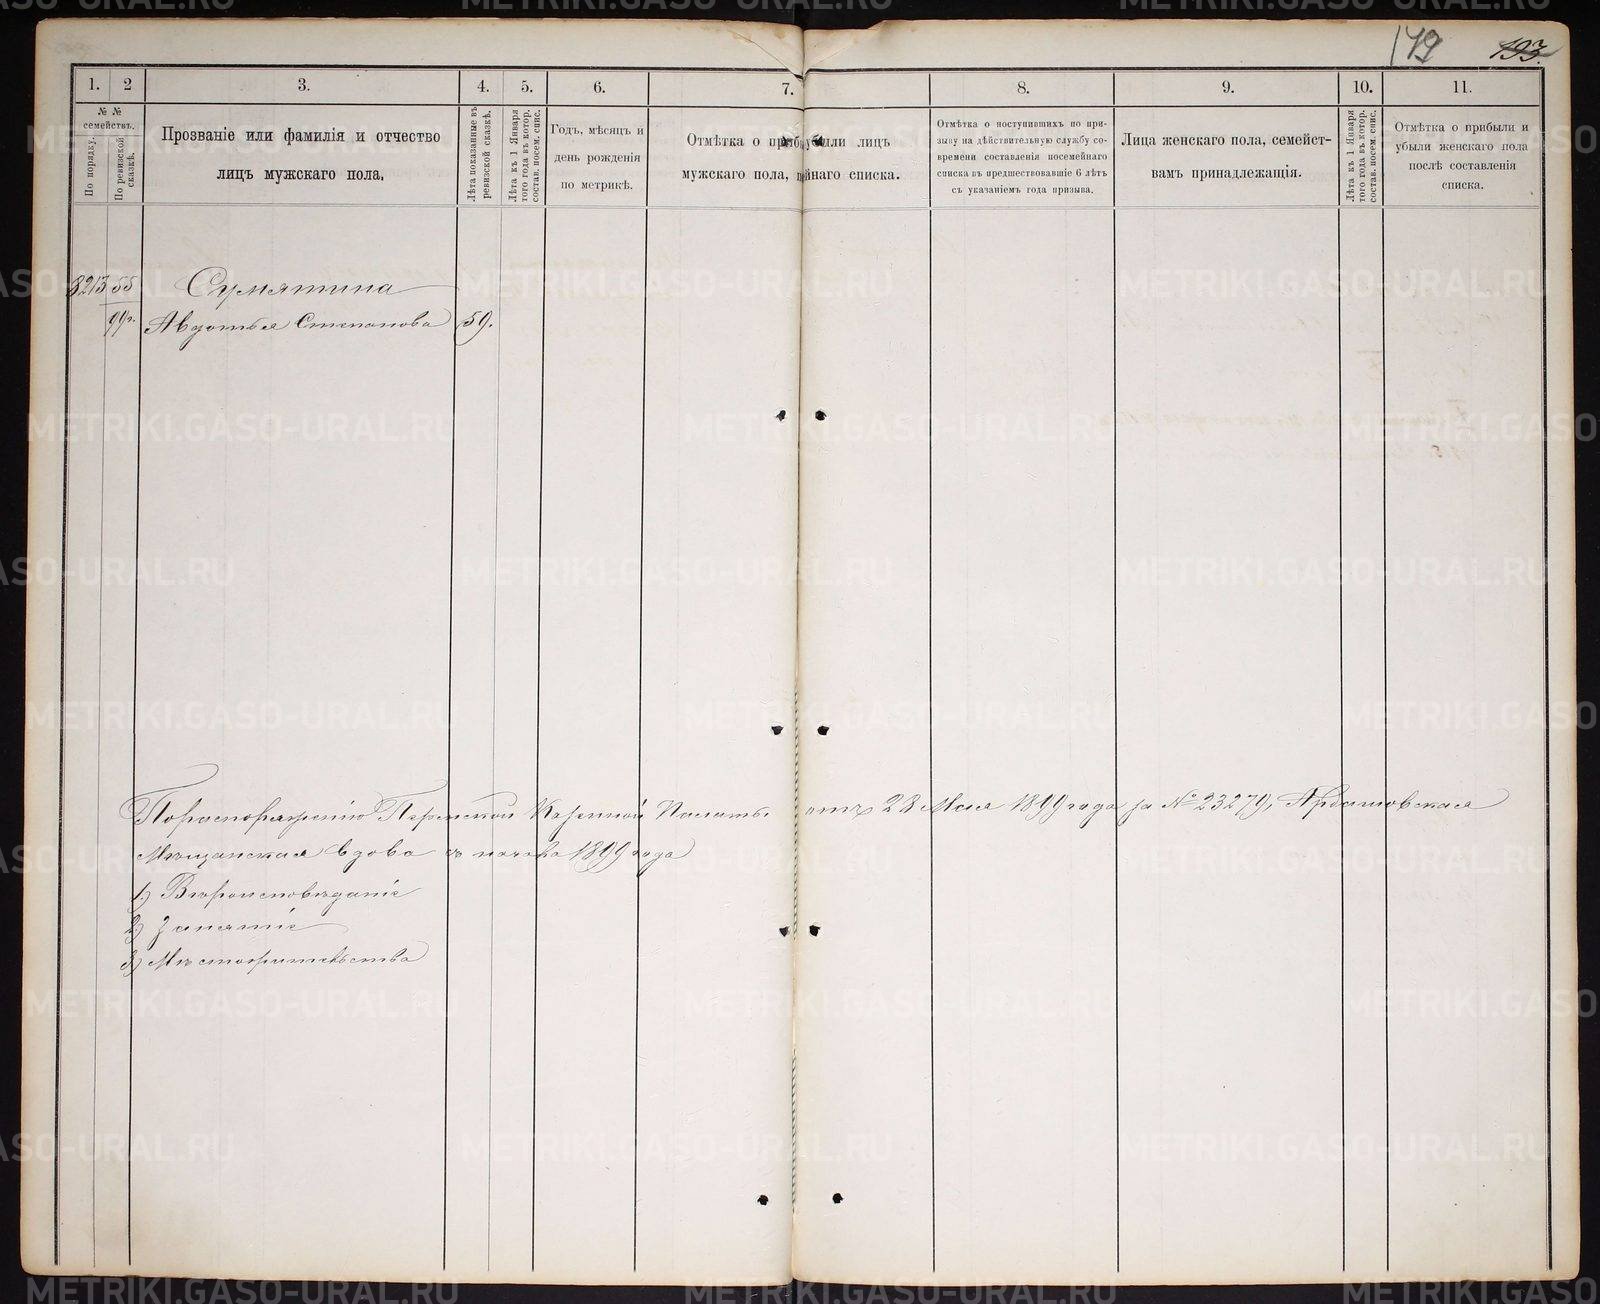 149 193.
1. 2 3. 4. 5. 6. 7. 8. 9. 10. 11.
№ №
семействъ.
По порядку.
По ревизской
сказкѣ.
Прозваніе или фамилія и отчество
лицъ мужскаго пола.
Лѣта показанные въ
ревизской сказкѣ.
Лѣта къ 1 Января
того года въ котор.
состав. посем. спис.
Годъ, мѣсяцъ и
день рожденія
по метрикѣ.
Отмѣтка о приб убыли лицъ
мужскаго пола, п ейнаго списка.
Отмѣтка о поступившихъ по при-
зыву на дѣйствительную службу со-
времени составленія посемейнаго
списка въ предшествовавшіе 6 лѣтъ
съ указаніемъ года призыва.
Лица женскаго пола, семейст-
вамъ принадлежащія.
Лѣта къ 1 Января
того года въ котор.
состав. посем. спис.
Отмѣтка о прибыли и
убыли женскаго пола
послѣ составленія
списка.
3213 55 Сумятина
99г. Авдотья Степанова 59.
По распоряженію Пермской Казенной Палаты отъ 28 Мая 1899 года за № 23279, Ардатовская
Мѣщанская вдова съ начала 1899 года
1) Вѣроисповѣданіе
2) Занятіе
3) Мѣстожительства
METRIKI.GASO-URAL.RU